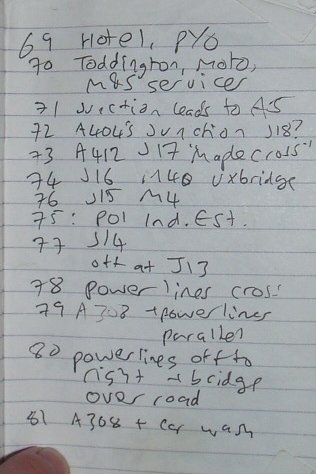 69 Hotel, PYO
70 Toddington, Moto,
M&S services
71 Junction leads to A5
72 A404's Junction J18?
73 A412 J17 "Maplecross"
74 J16 M40 Uxbridge
76 J15 M4
75: POI Ind. Est.
77 J14
off at J13
78 power lines cross
79 A308 + powerlines
parallel
80 powerlines off to
right + bridge
over road
81 A308 + car wash